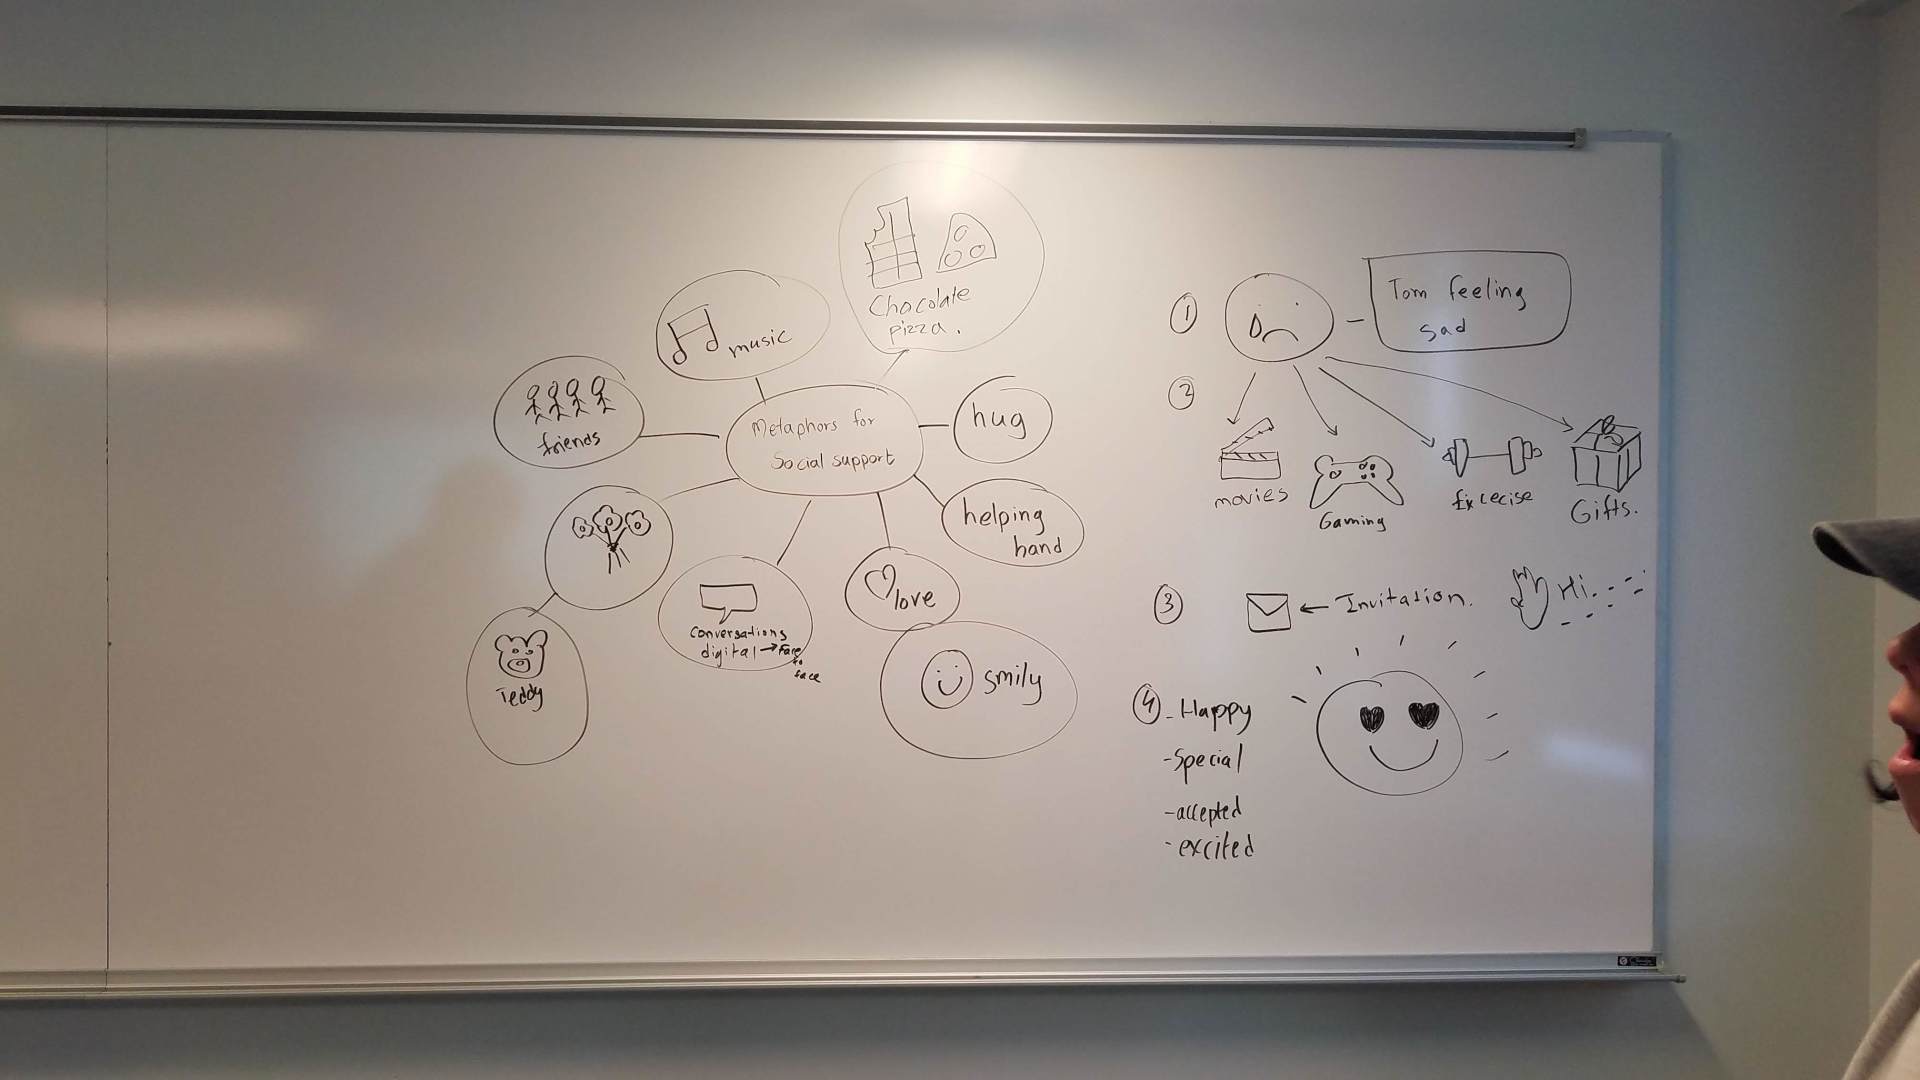 Chocolate
pizza.
music
friends
Metaphors for
Social support
hug
helping
hand
love
smily
Conversations
digital → Face
to
face
Teddy
1
Tom feeling
sad
2
movies
Gaming
Excecise
Gifts.
3
← Invitation.
Hi.
4 - Happy
- Special
- accepted
- excited